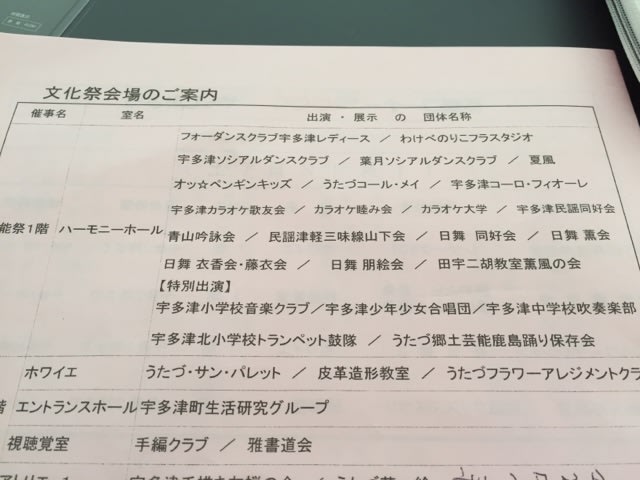 文化祭会場のご案内
催事名 室名 出演・展示 の 団体名称
フォーダンスクラブ宇多津レディース / わけべのりこフラスタジオ
宇多津ソシアルダンスクラブ / 葉月ソシアルダンスクラブ / 夏風
オッ☆ペンギンキッズ / うたづコール・メイ / 宇多津コーロ・フィオーレ
宇多津カラオケ歌友会 / カラオケ睦み会 / カラオケ大学 / 宇多津民謡同好会
能祭1階 ハーモニーホール 青山吟詠会 / 民謡津軽三味線山下会 / 日舞 同好会 / 日舞 薫会
日舞 衣香会・藤衣会 / 日舞 朋絵会 / 田宇二胡教室薫風の会
【特別出演】
宇多津小学校音楽クラブ/宇多津少年少女合唱団/宇多津中学校吹奏楽部
宇多津北小学校トランペット鼓隊 / うたづ郷土芸能鹿島踊り保存会
ホワイエ うたづ・サン・パレット / 皮革造形教室 / うたづフラワーアレジメントクラ
階 エントランスホール 宇多津町生活研究グループ
視聴覚室 手編クラブ / 雅書道会